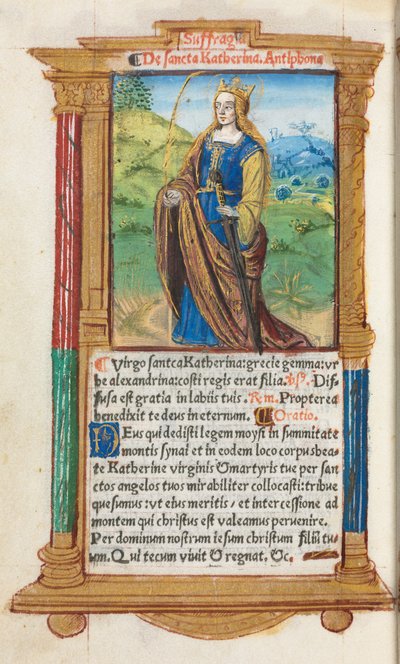 Suffragia
De sancta Katherina. Antiphona
Virgo santca Katherina: grecie gemma: vr
be alexandrina: costi regis erat filia. ṽs. Dif
fusa est gratia in labiis tuis. Rem. Propterea
benedixit te deus in eternum. Oratio.
DEus qui dedisti legem moysi in summitate
montis synai et in eodem loco corpus bea⸗
te Katherine virginis & martyris tue per san
ctos angelos tuos mirabiliter collocasti: tribue
quesumus: vt eius meritis, et intercessione ad
montem qui christus est valeamus peruenire.
Per dominum nostrum iesum christum filiū tu⸗
um. Qui tecum viuit & regnat. &c.